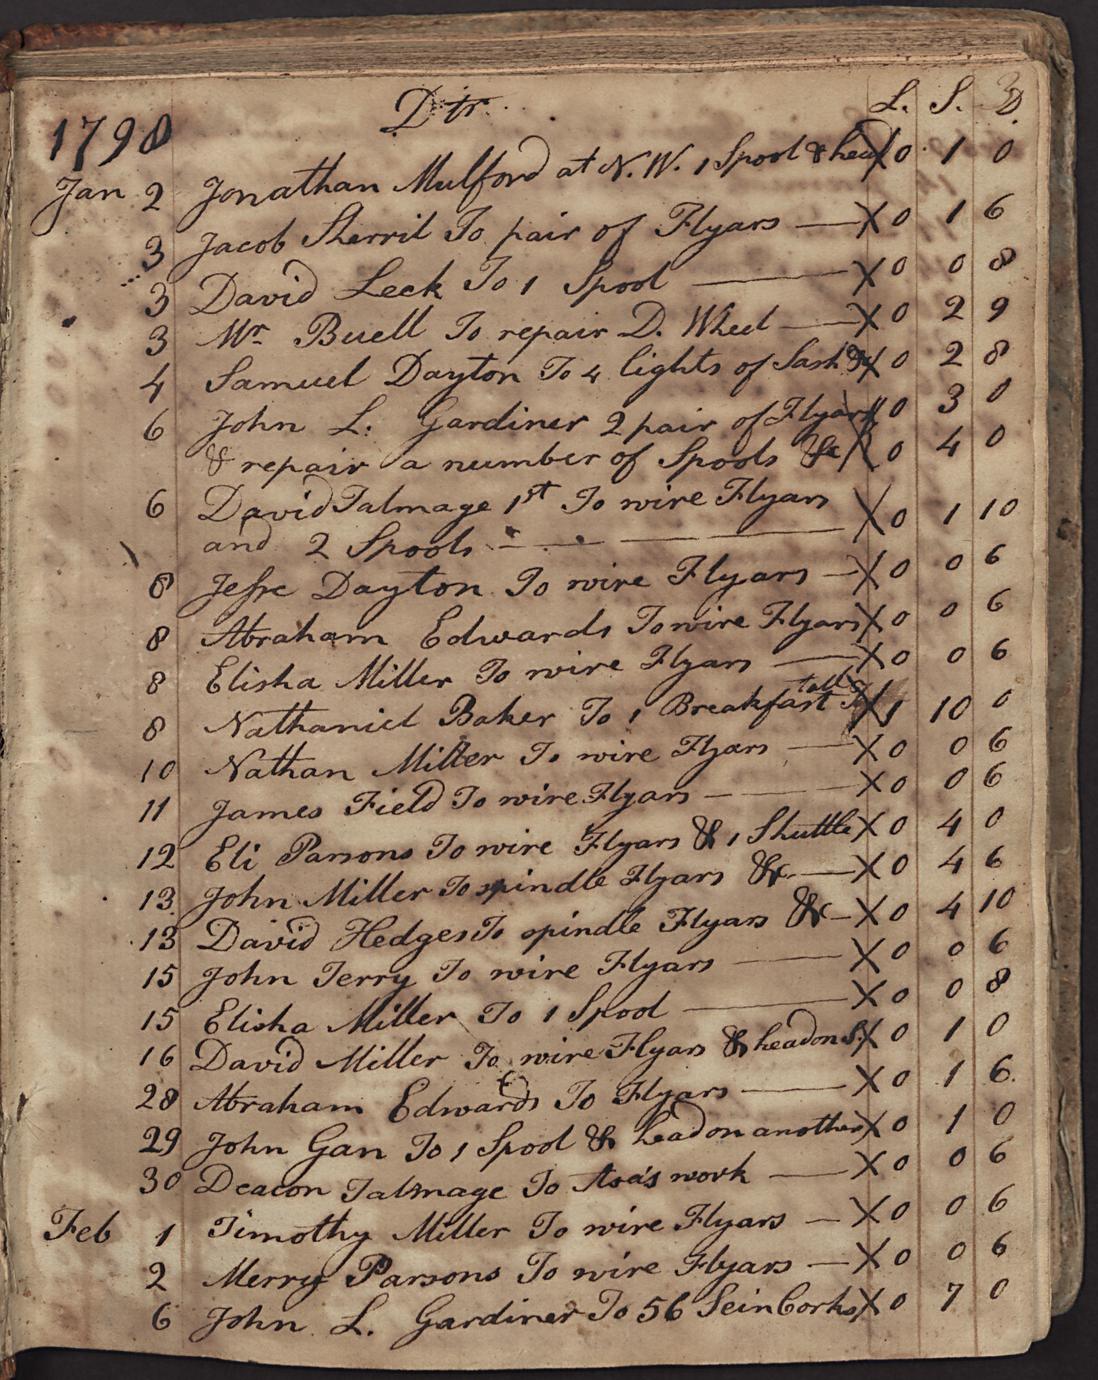 1798 Dtr. L. S. D
Jan 2 Jonathan Mulford at N.W. 1 Spool & head X 0 1 0
3 Jacob Sherril To pair of Flyars — X 0 1 6
3 David Leek To 1 Spool — X 0 0 8
3 Mr. Buell To repair D. Wheel — X 0 2 9
4 Samuel Dayton To 4 lights of Sash X 0 2 8
6 John L. Gardiner 2 pair of Flyars X 0 3 0
& repair a number of Spools &c X 0 4 0
6 David Talmage 1st To wire Flyars
and 2 Spools — X 0 1 10
8 Jesse Dayton To wire Flyars — X 0 0 6
8 Abraham Edwards To wire Flyars X 0 0 6
8 Elisha Miller To wire Flyars — X 0 0 6
8 Nathaniel Baker To 1 Breakfast X 1 10 0
10 Nathan Miller To wire Flyars — X 0 0 6
11 James Field To wire Flyars — X 0 0 6
12 Eli Parsons To wire Flyars & 1 Shuttle X 0 4 0
13 John Miller To spindle Flyars &c — X 0 4 6
13 David Hedges To spindle Flyars &c — X 0 4 10
15 John Terry To wire Flyars — X 0 0 6
15 Elisha Miller To 1 Spool — X 0 0 8
16 David Miller To wire Flyars & head on S. X 0 1 0
28 Abraham Edwards To Flyars — X 0 1 6
29 John Gan To 1 Spool & head on another X 0 1 0
30 Deacon Talmage To Asa's work — X 0 0 6
Feb 1 Timothy Miller To wire Flyars — X 0 0 6
2 Merry Parsons To wire Flyars — X 0 0 6
6 John L. Gardiner To 56 Sein Corks X 0 7 0